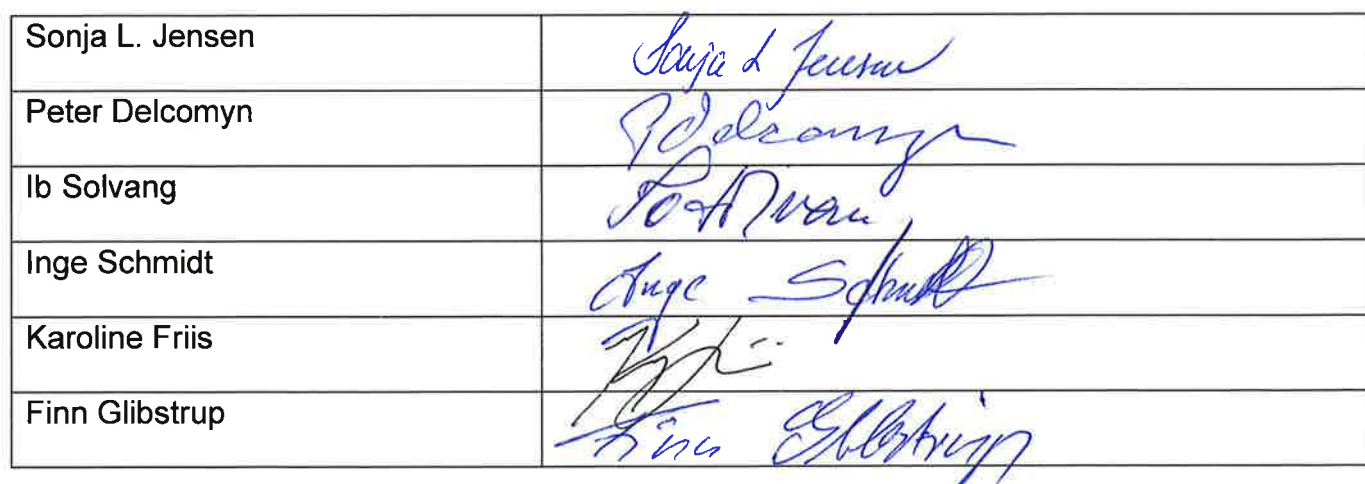 Sonja L. Jensen Sonja L Jensen
Peter Delcomyn PDelcomyn
Ib Solvang
Inge Schmidt Inge Schmidt
Karoline Friis
Finn Glibstrup Finn Glibstrup